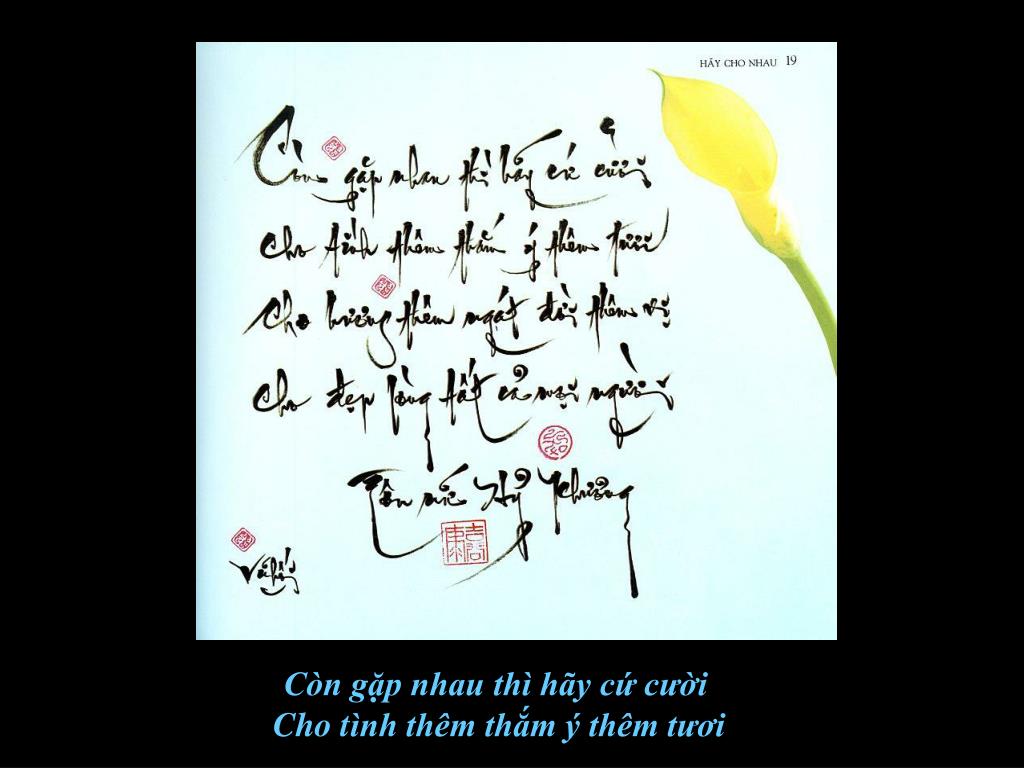 HÃY CHO NHAU 19
Còn gặp nhau thì hãy cứ cười
Cho tình thêm thắm ý thêm tươi
Cho hương thêm ngát đời thêm vị
Cho đẹp lòng tất cả mọi người
Tôn nữ Hỷ Khương
Còn gặp nhau thì hãy cứ cười
Cho tình thêm thắm ý thêm tươi